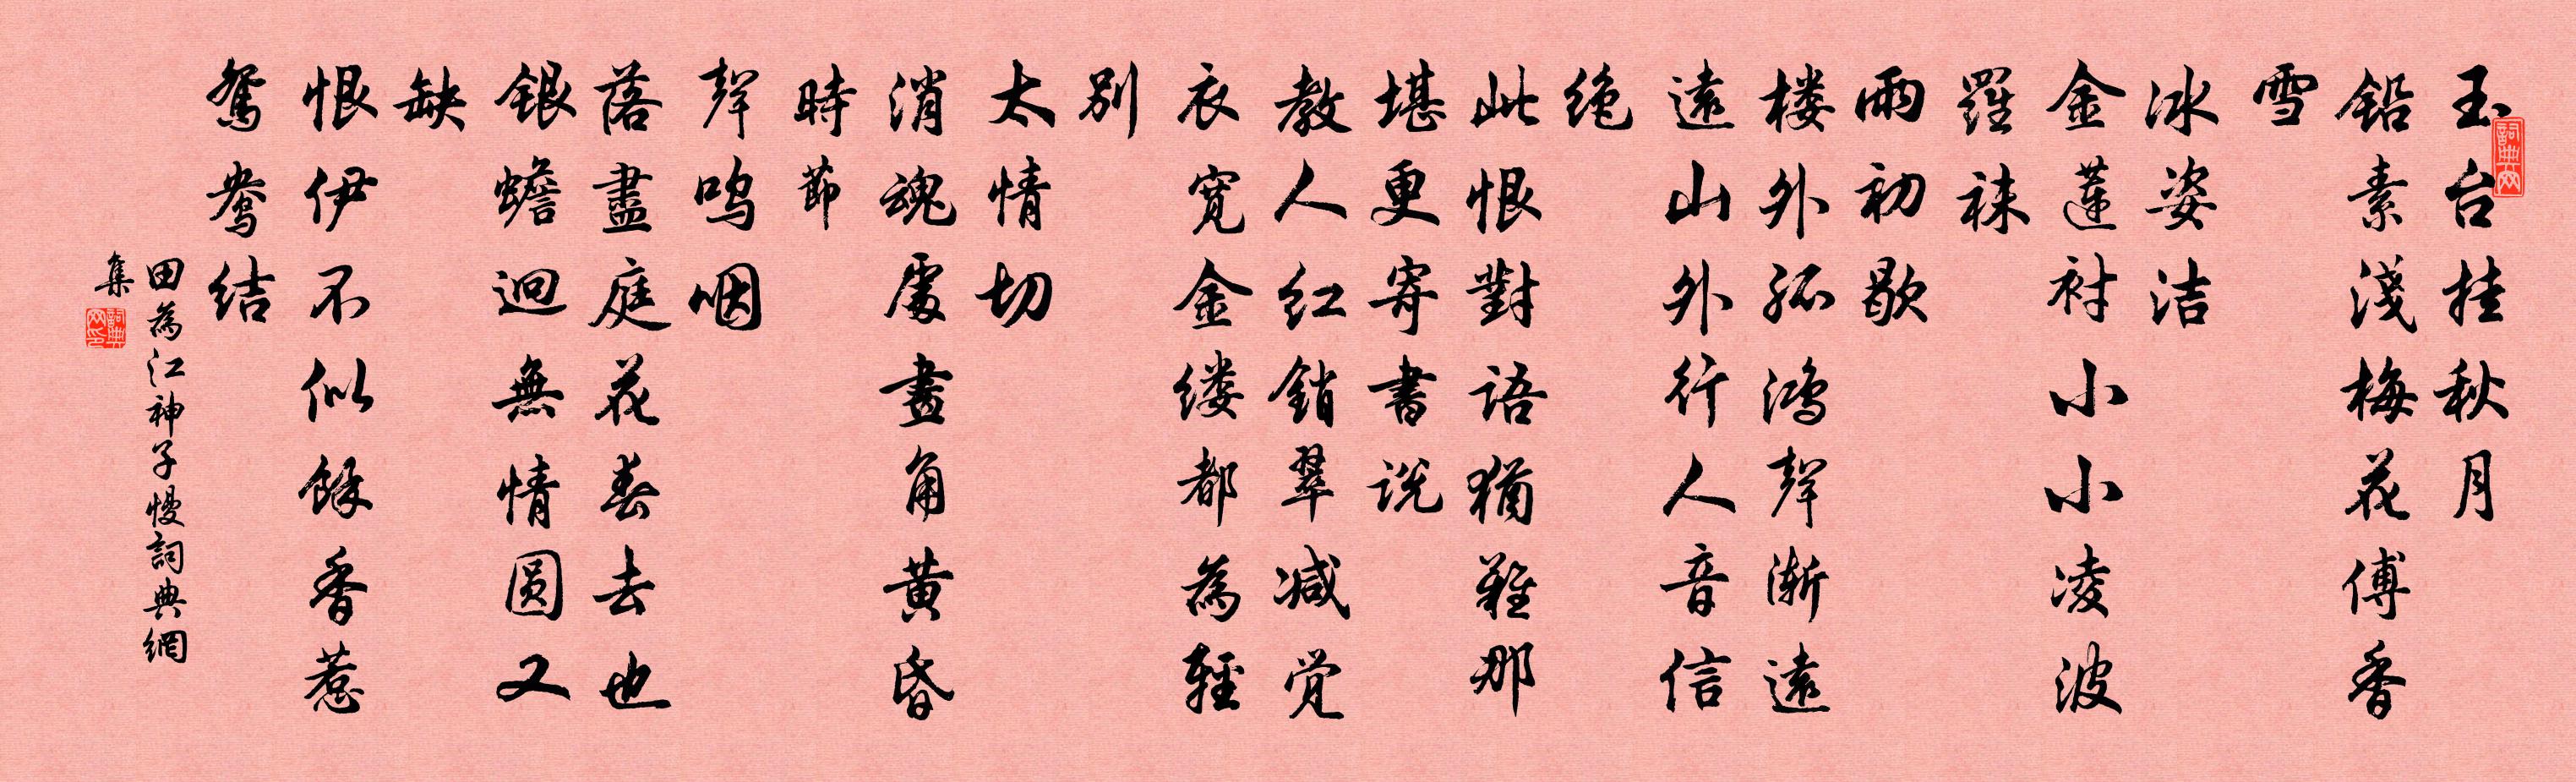 玉台挂秋月
铅素淺梅花傅香
雪
冰姿洁
金蓮衬小小凌波
羅袜
雨初歇
楼外孤鸿聲渐遠
遠山外行人音信
绝
此恨對语猶難那
堪更寄書说
教人红銷翠减觉
衣宽金缕都為輕
别
太情切
消魂處畫角黄昏
時節
聲呜咽
落盡庭花春去也
银蟾迥無情圆又
缺
恨伊不似餘香惹
鸳鸯结
田為江神子慢詞典網
集
詞典网
詞典网印